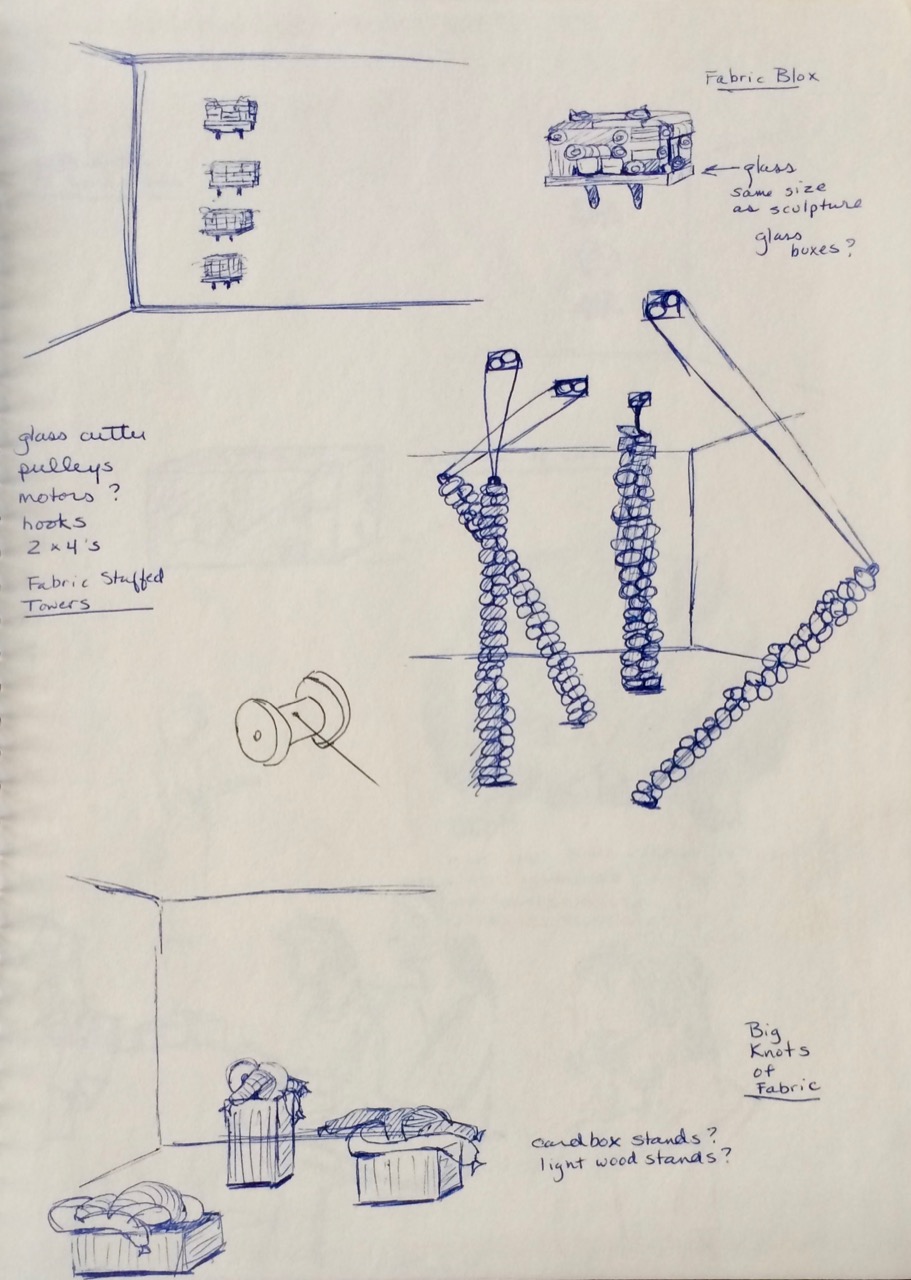 Fabric Blox
glass
same size
as sculpture
glass
boxes?
glass cutter
pulleys
motors ?
hooks
2 x 4's
Fabric Stuffed
Towers
Big
Knots
of
Fabric
cardbox stands?
light wood stands?